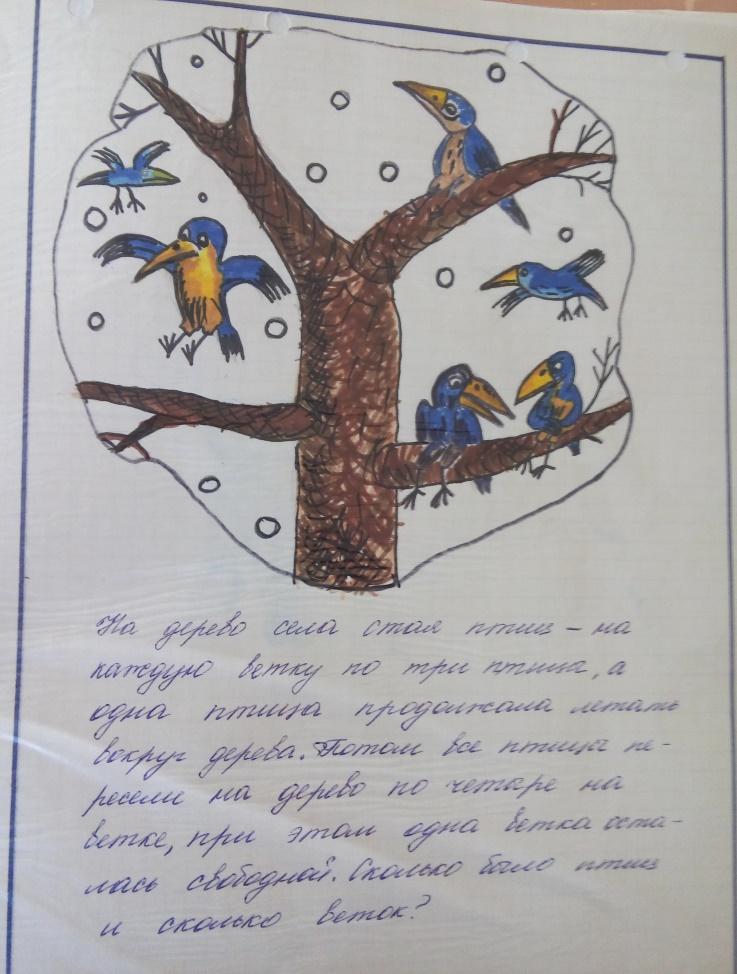 На дерево села стая птиц – на
каждую ветку по три птица, а
одна птица продолжала летать
вокруг дерева. Потом все птицы пе-
ресели на дерево по четыре на
ветке, при этом одна ветка оста-
лась свободной. Сколько было птиц
и сколько веток?